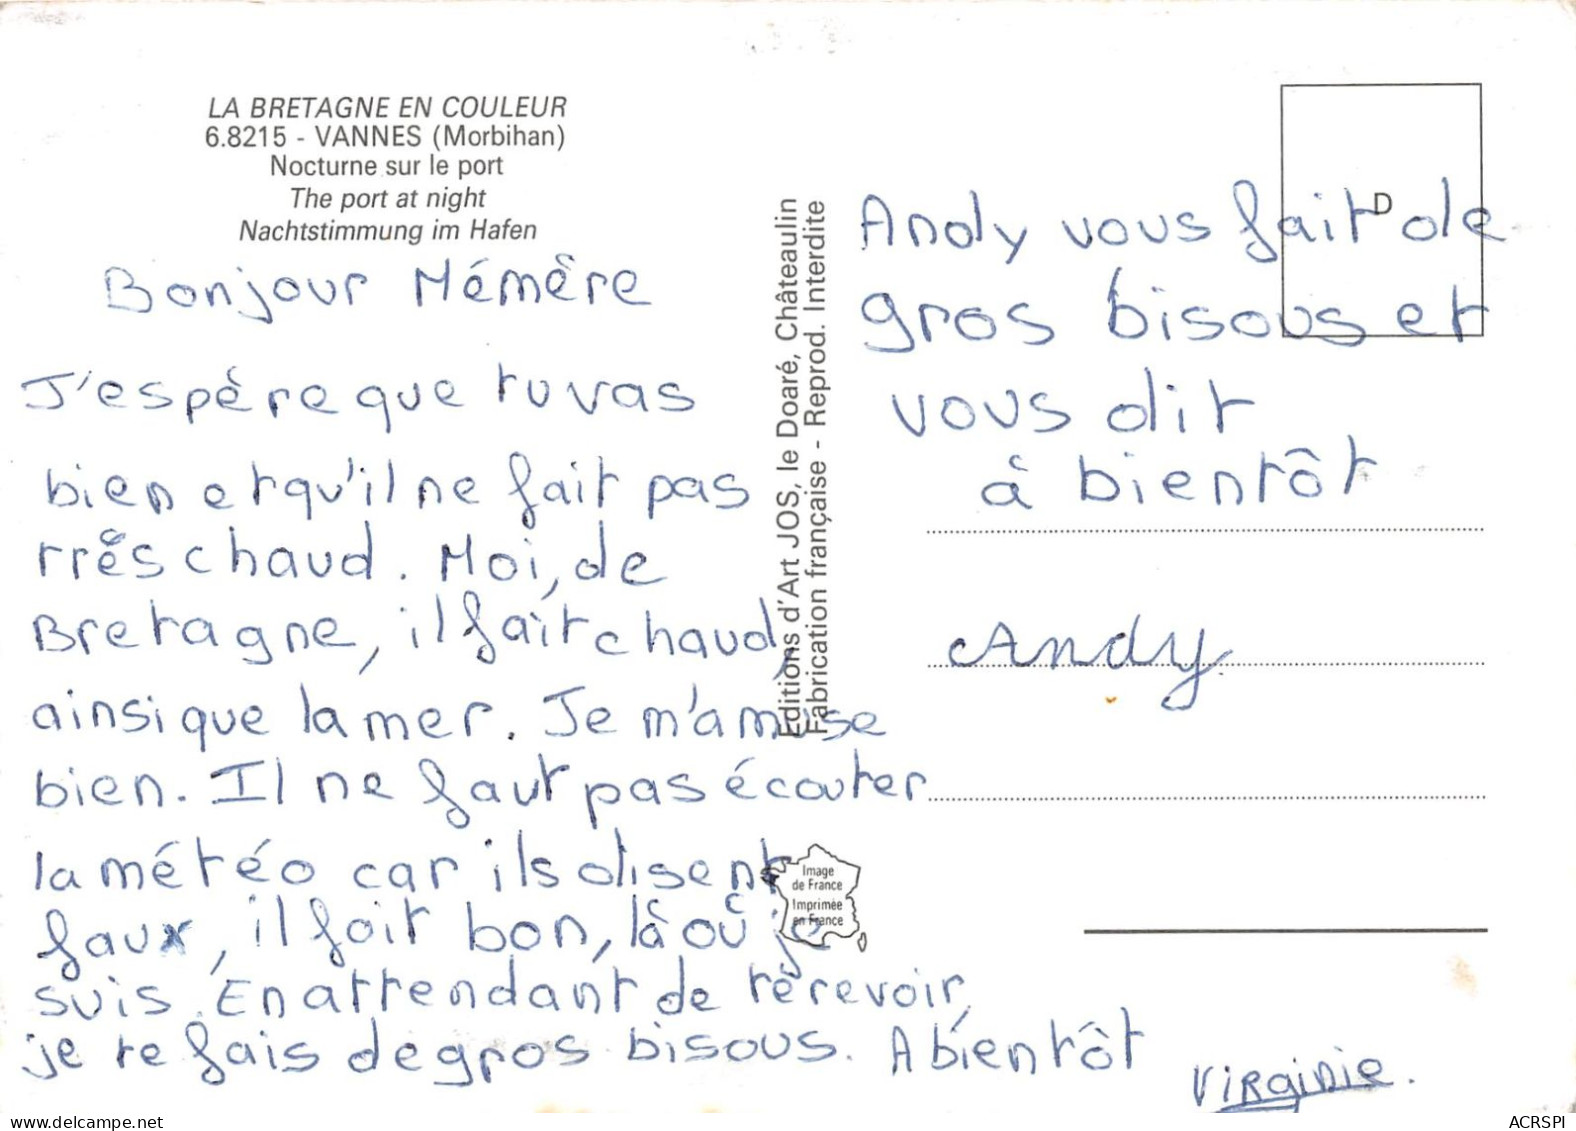 LA BRETAGNE EN COULEUR
6.8215 - VANNES (Morbihan)
Nocturne sur le port
The port at night
Nachtstimmung im Hafen
Bonjour Mémère
J'espère que tu vas
bien et qu'il ne fait pas
très chaud. Moi, de
Bretagne, il fait chaud,
ainsi que la mer. Je m'amuse
bien. Il ne faut pas écouter
la météo car ils disent
faux, il fait bon, là où je
suis. En attendant de te revoir,
je te fais de gros bisous. A bientôt
Virginie.
Editions d'Art JOS, le Doaré, Châteaulin
Fabrication française - Reprod. Interdite
Image
de France
Imprimée
en France
D
Andy vous fait de
gros bisous et
vous dit
à bientôt
Andy
ACRSPI